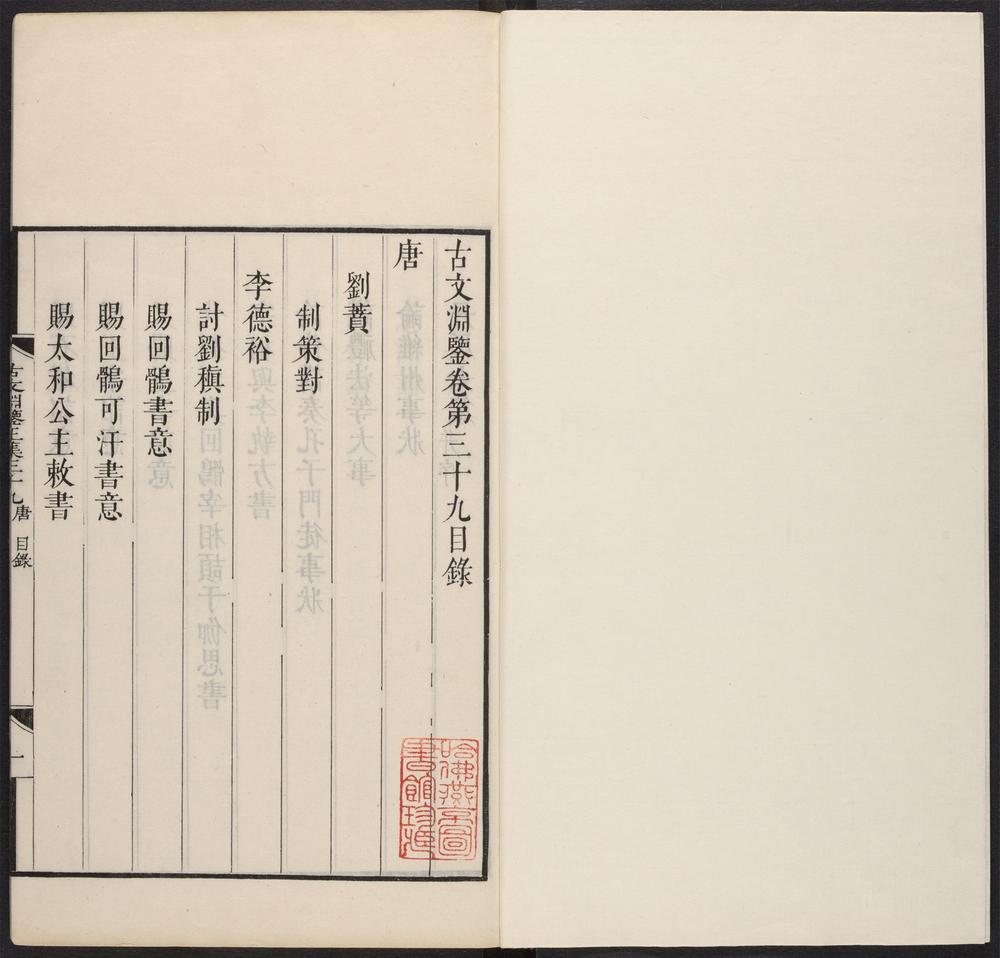 古文淵鑒卷第三十九目錄
唐
劉蕡
制策對
李德裕
討劉稹制
賜回鶻書意
賜回鶻可汗書意
賜太和公主敕書
古文淵鑒正集三十九 唐 目錄
一
哈佛燕京圖
書館珍藏